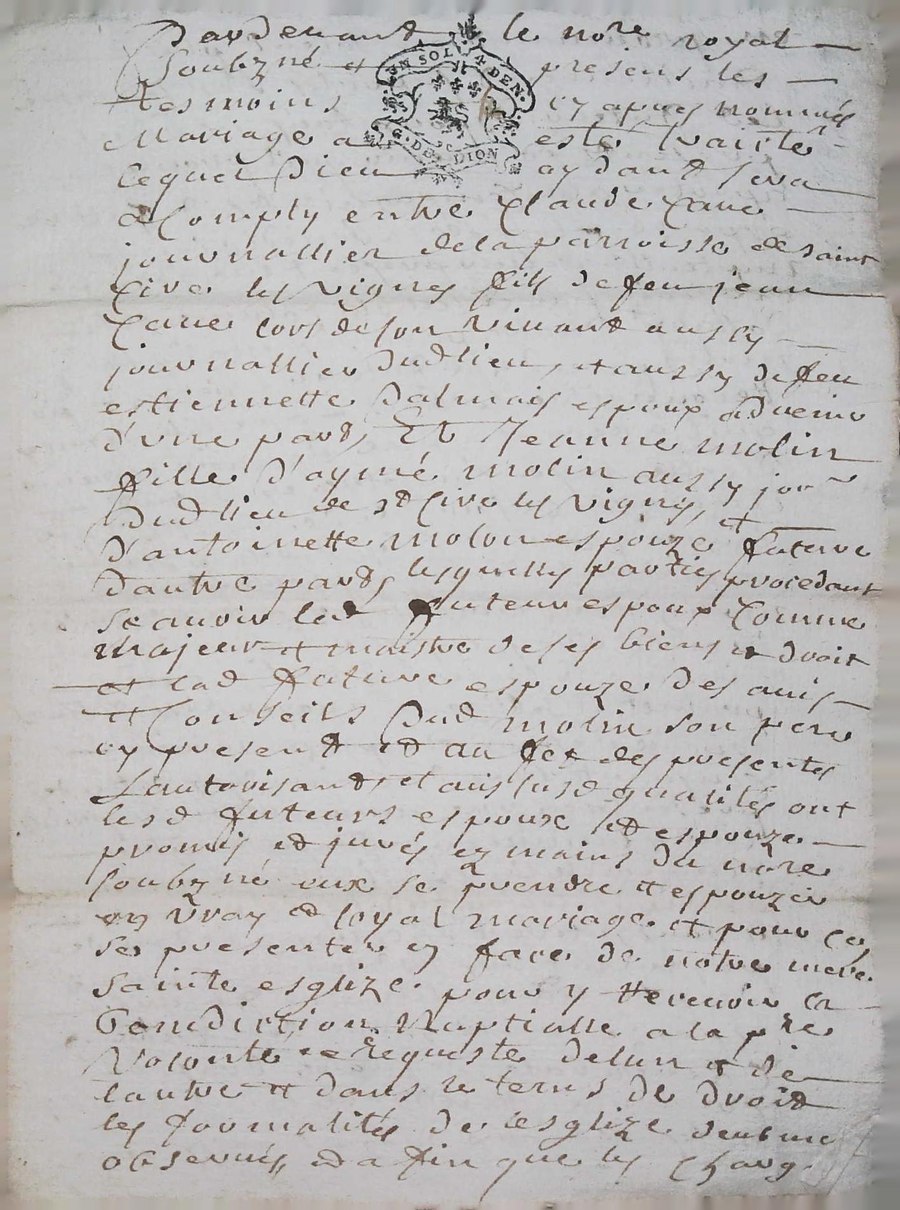 Pardevant le nore royal
soubzné et presens les
tesmoins cy apres nommés
Mariage a esté traisté
lequel Dieu aydant sera
UN SOL 4. DEN.
G. DE LION
acomply entre Claude Cave
journallier de la parroisse de saint
Cire les vignes fils de feu jean
Cave lors de son vivant aussy
journallier dudlieu, et aussy de feu
estiennette Dalmais espoux advenir
d'une part, Et Jeanne molin
fille d'aymé molin aussy jor
dudlieu de st Cire les vignes, et
d'antoinette molon espouze future
dautre part, lesquelles parties procedant
scavoir led futeur espoux Comme
Majeur et maistre de ses biens et droit
et lad future espouze des avis
et Conseils dud molin son pere
cy present et au fet des presentes
Lautorisant, et aususd qualités ont
lesd futeurs espoux et espouze
promis et jurés ez mains du nore
soubzné eux se prendre et espouzer
en vray et loyal mariage et pour ce,
se presenter en face de notre mere
sainte esglize pour y recevoir la
benediction Nuptialle a la pre
Volonté et Requeste delun et de
lautre et dans le tems de droit
les formalités de lesglize deubme
observés, et afin que les charg